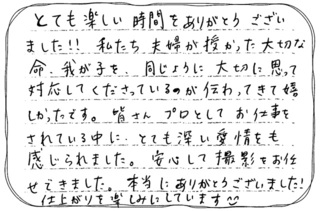 とても楽しい時間をありがとうござい
ました!! 私たち夫婦が授かった大切な
命、我が子を、同じように大切に思って
対応してくださっているのが伝わってきて嬉
しかったです。皆さんプロとしてお仕事を
されている中に、とても深い愛情をも
感じられました。安心して撮影をお任
せできました。本当にありがとうございました!
仕上がりを楽しみにしています☺